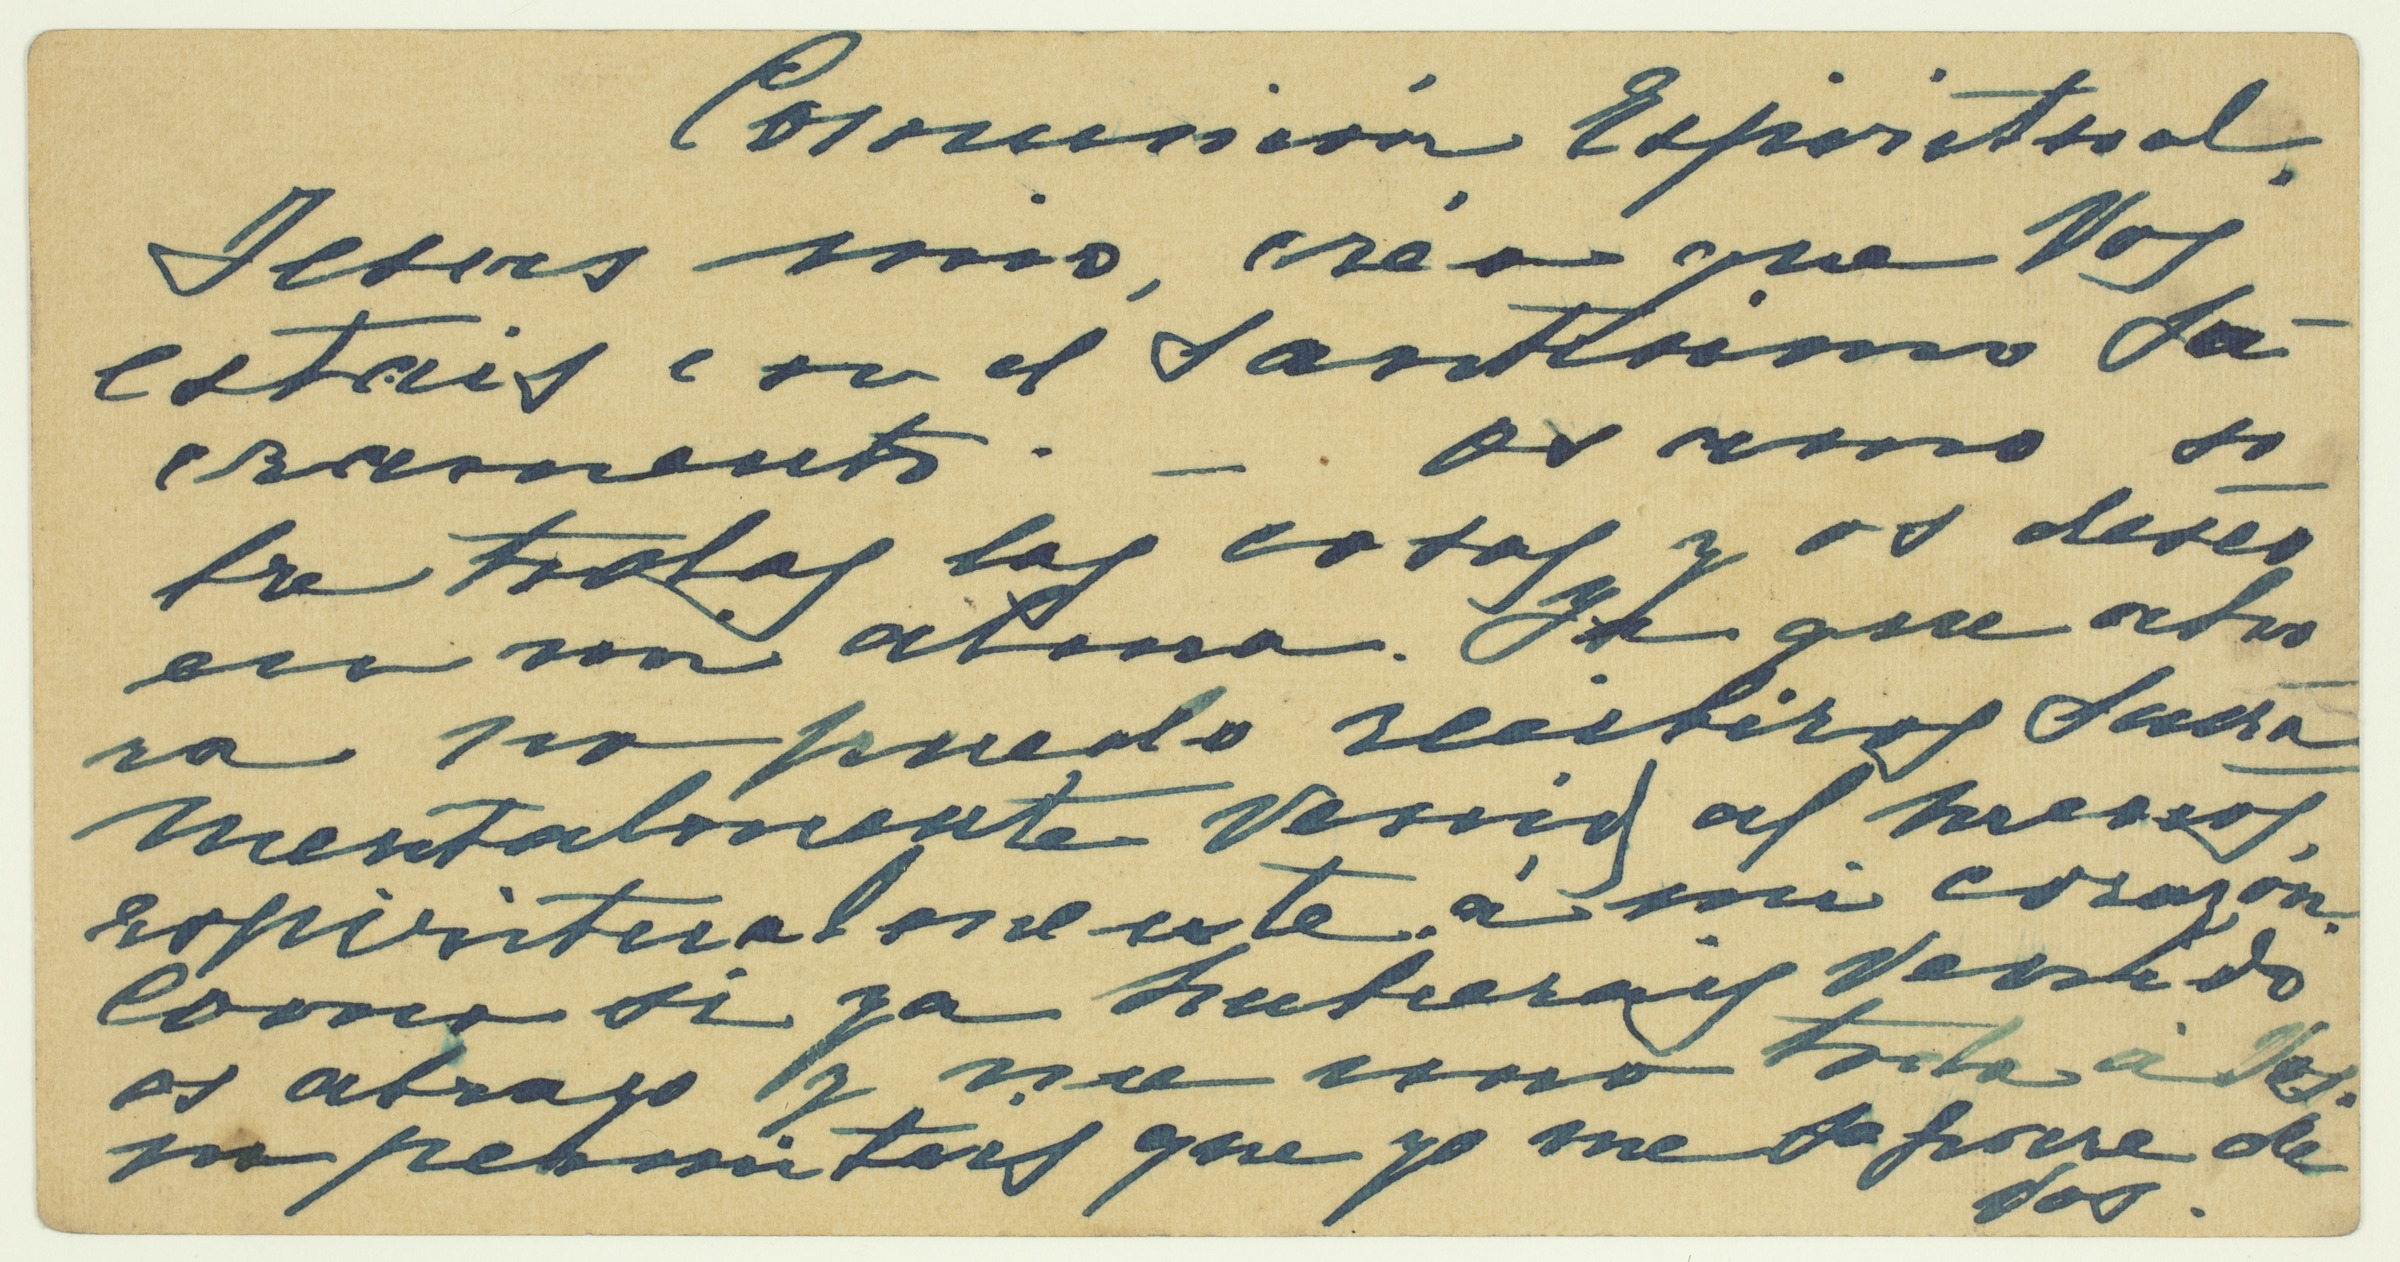 Comunión Espiritual.
Jesus mio, créo que Vos
estais en el Santisimo Sa-
cramento. — os amo so
bre todas las cosas y os deseo
en mi alma. Ya que aho
ra no puedo recibiros Sacra
mentalmente venid al menos,
espiritualmente á mi corazón.
Como si ya hubierais venido
os abrazo y me uno toda á Vos.
no permitais que yo me separe de
Vos.